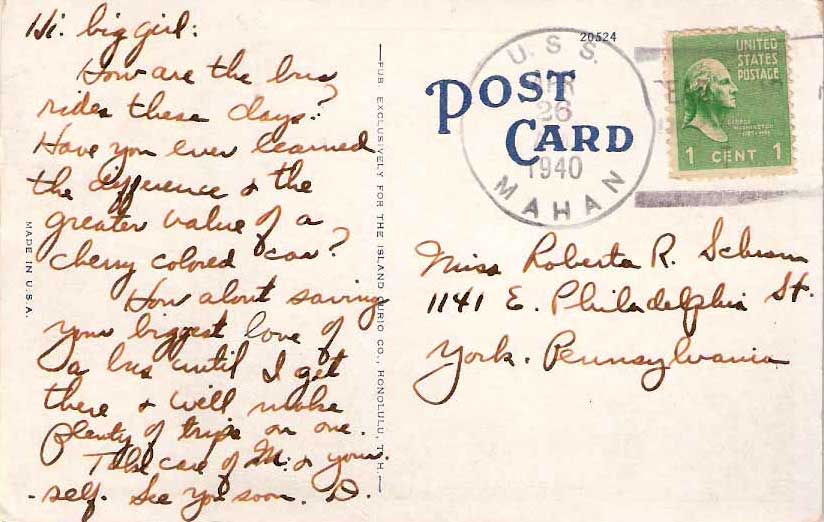 Hi. big girl:
How are the bus
rides these days?
Have you ever learned
the difference & the
greater value of a
cherry colored car?
How about saving
your biggest love of
a bus until I get
there & will make
plenty of trips on one.
Take care of M. & your
-self. See you soon. D.
MADE IN U.S.A.
PUB EXCLUSIVELY FOR THE ISLAND CURIO CO., HONOLULU, T.H.
20524
POST
CARD
U.S.S.
APR
26
1940
MAHAN
UNITED
STATES
POSTAGE
GEORGE
WASHINGTON
1 CENT 1
Miss Roberta R. Schram
1141 E. Philadelphia St.
York. Pennsylvania